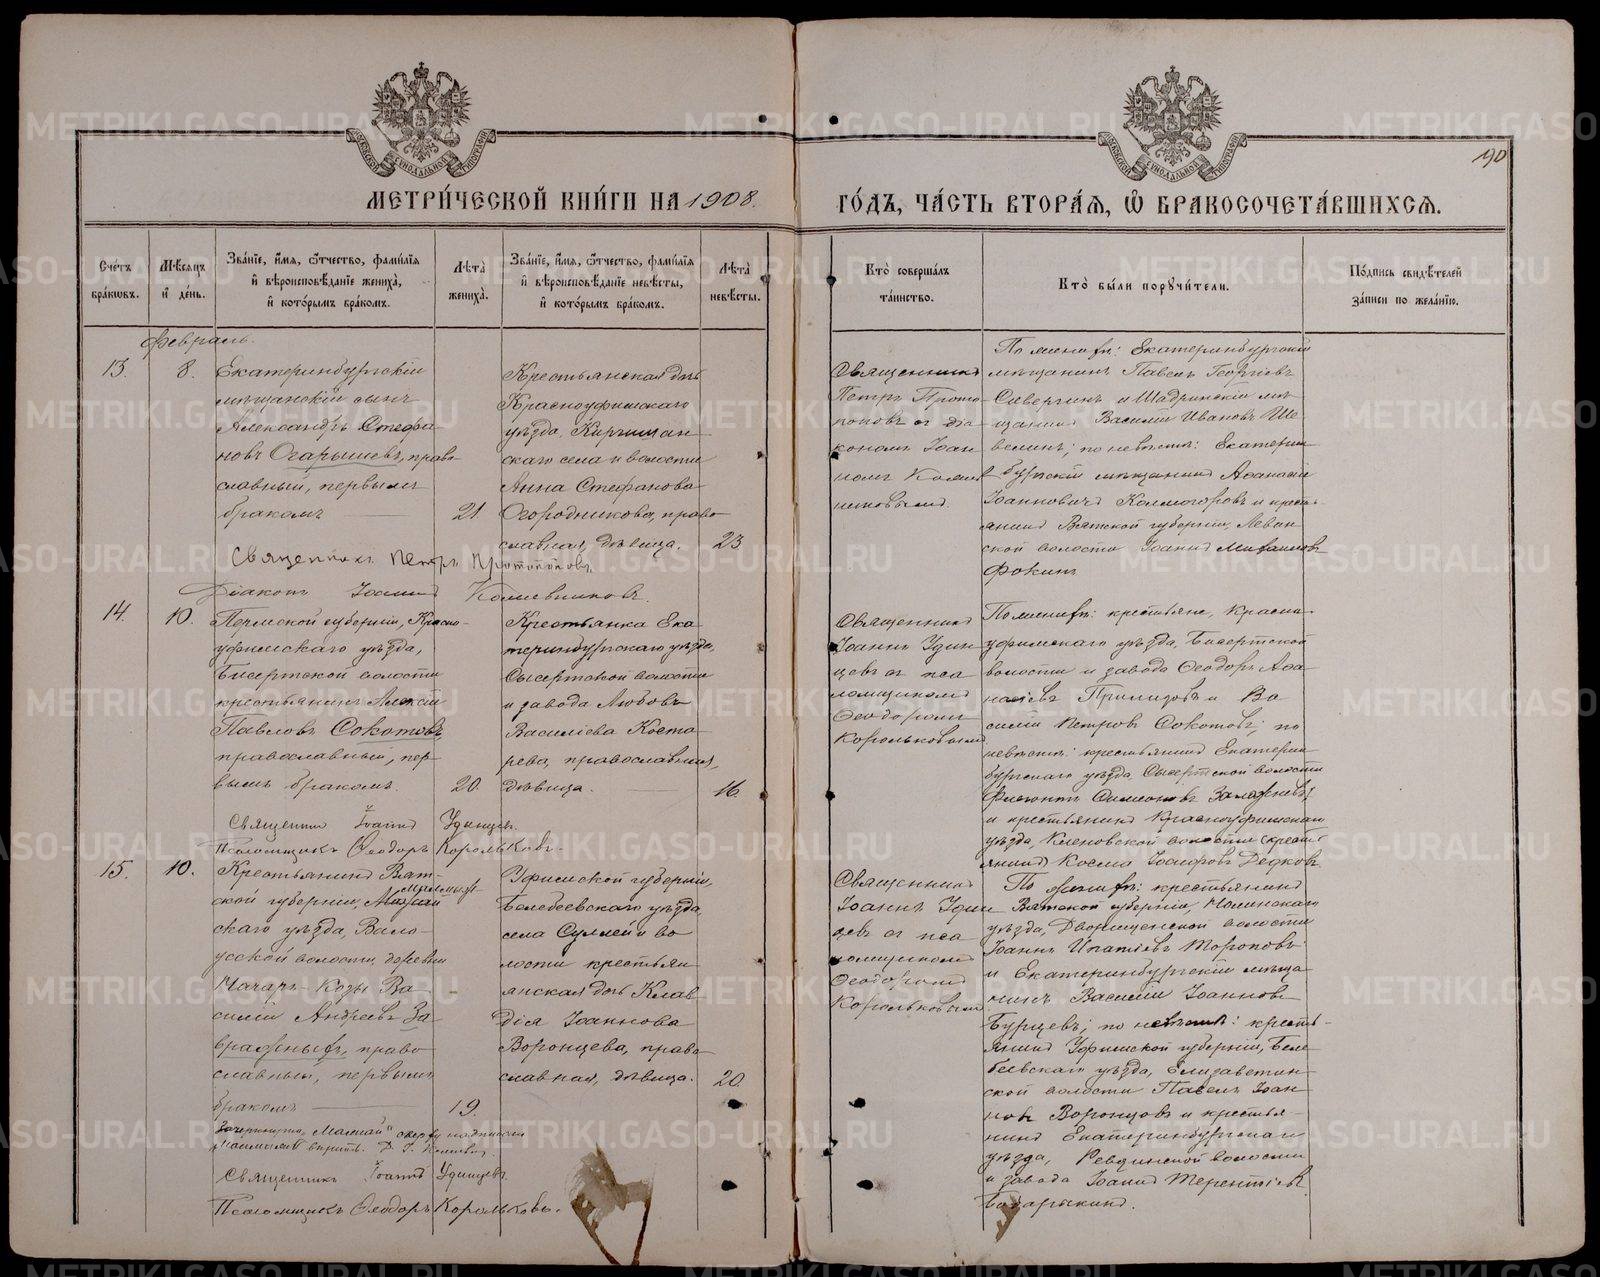 МЕТРИ́ЧЕСКОЙ КНИ́ГИ НА 1908.
ГО́ДЪ, ЧА́СТЬ ВТОРА́Я, Ѽ БРАКОСОЧЕТА́ВШИХСЯ.
190
Сче́тъ бра́ковъ.
Мѣ́сяцъ и҆ де́нь.
Зва́нїе, и҆́мя, ѻ҆́тчество, фами́лїя и҆ вѣроисповѣ́данїе жениха̀, и҆ кото́рымъ бра́комъ.
Лѣ́та̀ жениха̀.
Зва́нїе, и҆́мя, ѻ҆́тчество, фами́лїя и҆ вѣроисповѣ́данїе невѣ́сты, и҆ кото́рымъ бра́комъ.
Лѣ́та̀ невѣ́сты.
Кто̀ соверша́лъ та́инство.
Кто̀ бы́ли пору́чители.
По́дпись свидѣ́телей за́писи по жела́нїю.
Февраль.
13.
8.
Екатеринбургскій
мѣщанскій сынъ
Александръ Стефа-
новъ Огарышевъ, право-
славный, первымъ
бракомъ
21.
Крестьянская дочь
Красноуфимскаго
уѣзда, Киргишан-
скаго села и волости
Анна Стефанова
Огородникова, право-
славная, дѣвица.
23
Священникъ
Петръ Прото-
поповъ съ діа-
кономъ Іоан-
номъ
По женихѣ: Екатеринбургскій
мѣщанинъ Павелъ Георгіевъ
Савергинъ и Шадринскій мѣ-
щанинъ Василій Ивановъ Ше-
велинъ; по невѣстѣ: Екатерин-
бургскій мѣщанинъ Аѳанасій
Іоанновичъ Колмогоровъ и кресть-
янинъ Вятской губерніи, Леван-
ской волости Іоаннъ Михаиловъ
Фокинъ
Священникъ Петръ Протопоповъ.
Діаконъ Іоаннъ
14.
10.
Пермской губерніи, Красно-
уфимскаго уѣзда,
Бисертской волости
крестьянинъ Алексій
Павловъ Сокотовъ
православный, пер-
вымъ бракомъ.
20.
Крестьянка Ека-
теринбургскаго уѣзда,
Сысертской волости
и завода Любовь
Василіева Коста-
рева, православная,
дѣвица.
16.
Священникъ
Іоаннъ Удин-
цевъ съ пса-
ломщикомъ
Ѳеодоромъ
Корольковымъ
По женихѣ: крестьяне, Красно-
уфимскаго уѣзда, Бисертской
волости и завода Ѳеодоръ Аѳа-
насіевъ и Ва-
силій Петровъ Сокотовъ; по
невѣстѣ: крестьянинъ Екатерин-
бургскаго уѣзда, Сысертской волости
Симоновъ
и крестьянинъ Красноуфимскаго
уѣзда, Кленовской волости (кресть-
янинъ) Косма Іосифовъ Дедковъ
Священникъ Іоаннъ Удинцевъ.
Псаломщикъ Ѳеодоръ Корольковъ.
15.
10.
Крестьянинъ Вят-
Малмыж-
ской губерніи, Малмай
скаго уѣзда,
волости, деревни
Ва-
силій Андреевъ За-
вражныхъ, право-
славный, первымъ
бракомъ
19.
Уфимской губерніи,
Белебеевскаго уѣзда,
села Суллей и во-
лости крестьян-
янская дочь Клав-
дія Іоаннова
Воронцева, право-
славная, дѣвица.
20.
Священникъ
Іоаннъ Удин-
цевъ съ пса-
ломщикомъ
Ѳеодоромъ
Корольковымъ.
По женихѣ: крестьянинъ
Вятской губерніи, Нолинскаго
уѣзда, волости
Іоаннъ Ипатіевъ Тороповъ
и Екатеринбургскій мѣща-
нинъ Василій Іоанновъ
Бурцевъ; по невѣстѣ: кресть-
янинъ Уфимской губерніи, Беле-
беевскаго уѣзда, Елизаветин-
ской волости Павелъ Іоан-
новъ Воронцовъ и крестья-
нинъ Екатеринбургскаго
уѣзда, Ревдинской волости
и завода Іоаннъ Терентіевъ
Бадарыкинъ.
Зачеркнуто „Малмай“ сверху надписан.
вѣрить.
Священникъ Іоаннъ Удинцевъ.
Псаломщикъ Ѳеодоръ Корольковъ.
METRIKI.GASO-URAL.RU